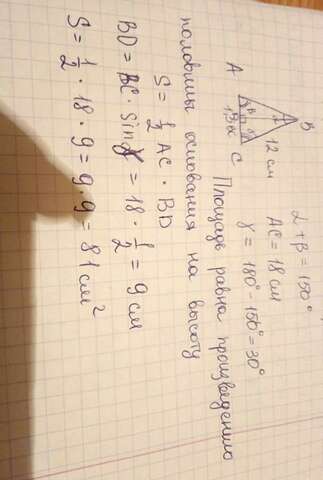 B
A
C
12 см
18 см
α + β = 150°
AC = 18 см
γ = 180° - 150° = 30°
Площадь равна произведению
половины основания на высоту
S = 1/2 AC · BD
BD = BC · Sin γ = 18 · 1/2 = 9 см
S = 1/2 · 18 · 9 = 9 · 9 = 81 см²